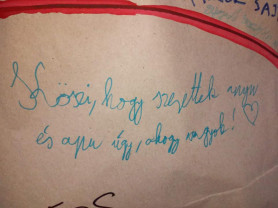 SAJ
Köszi, hogy szerettek anyu
és apu úgy, ahogy vagyok! ♡